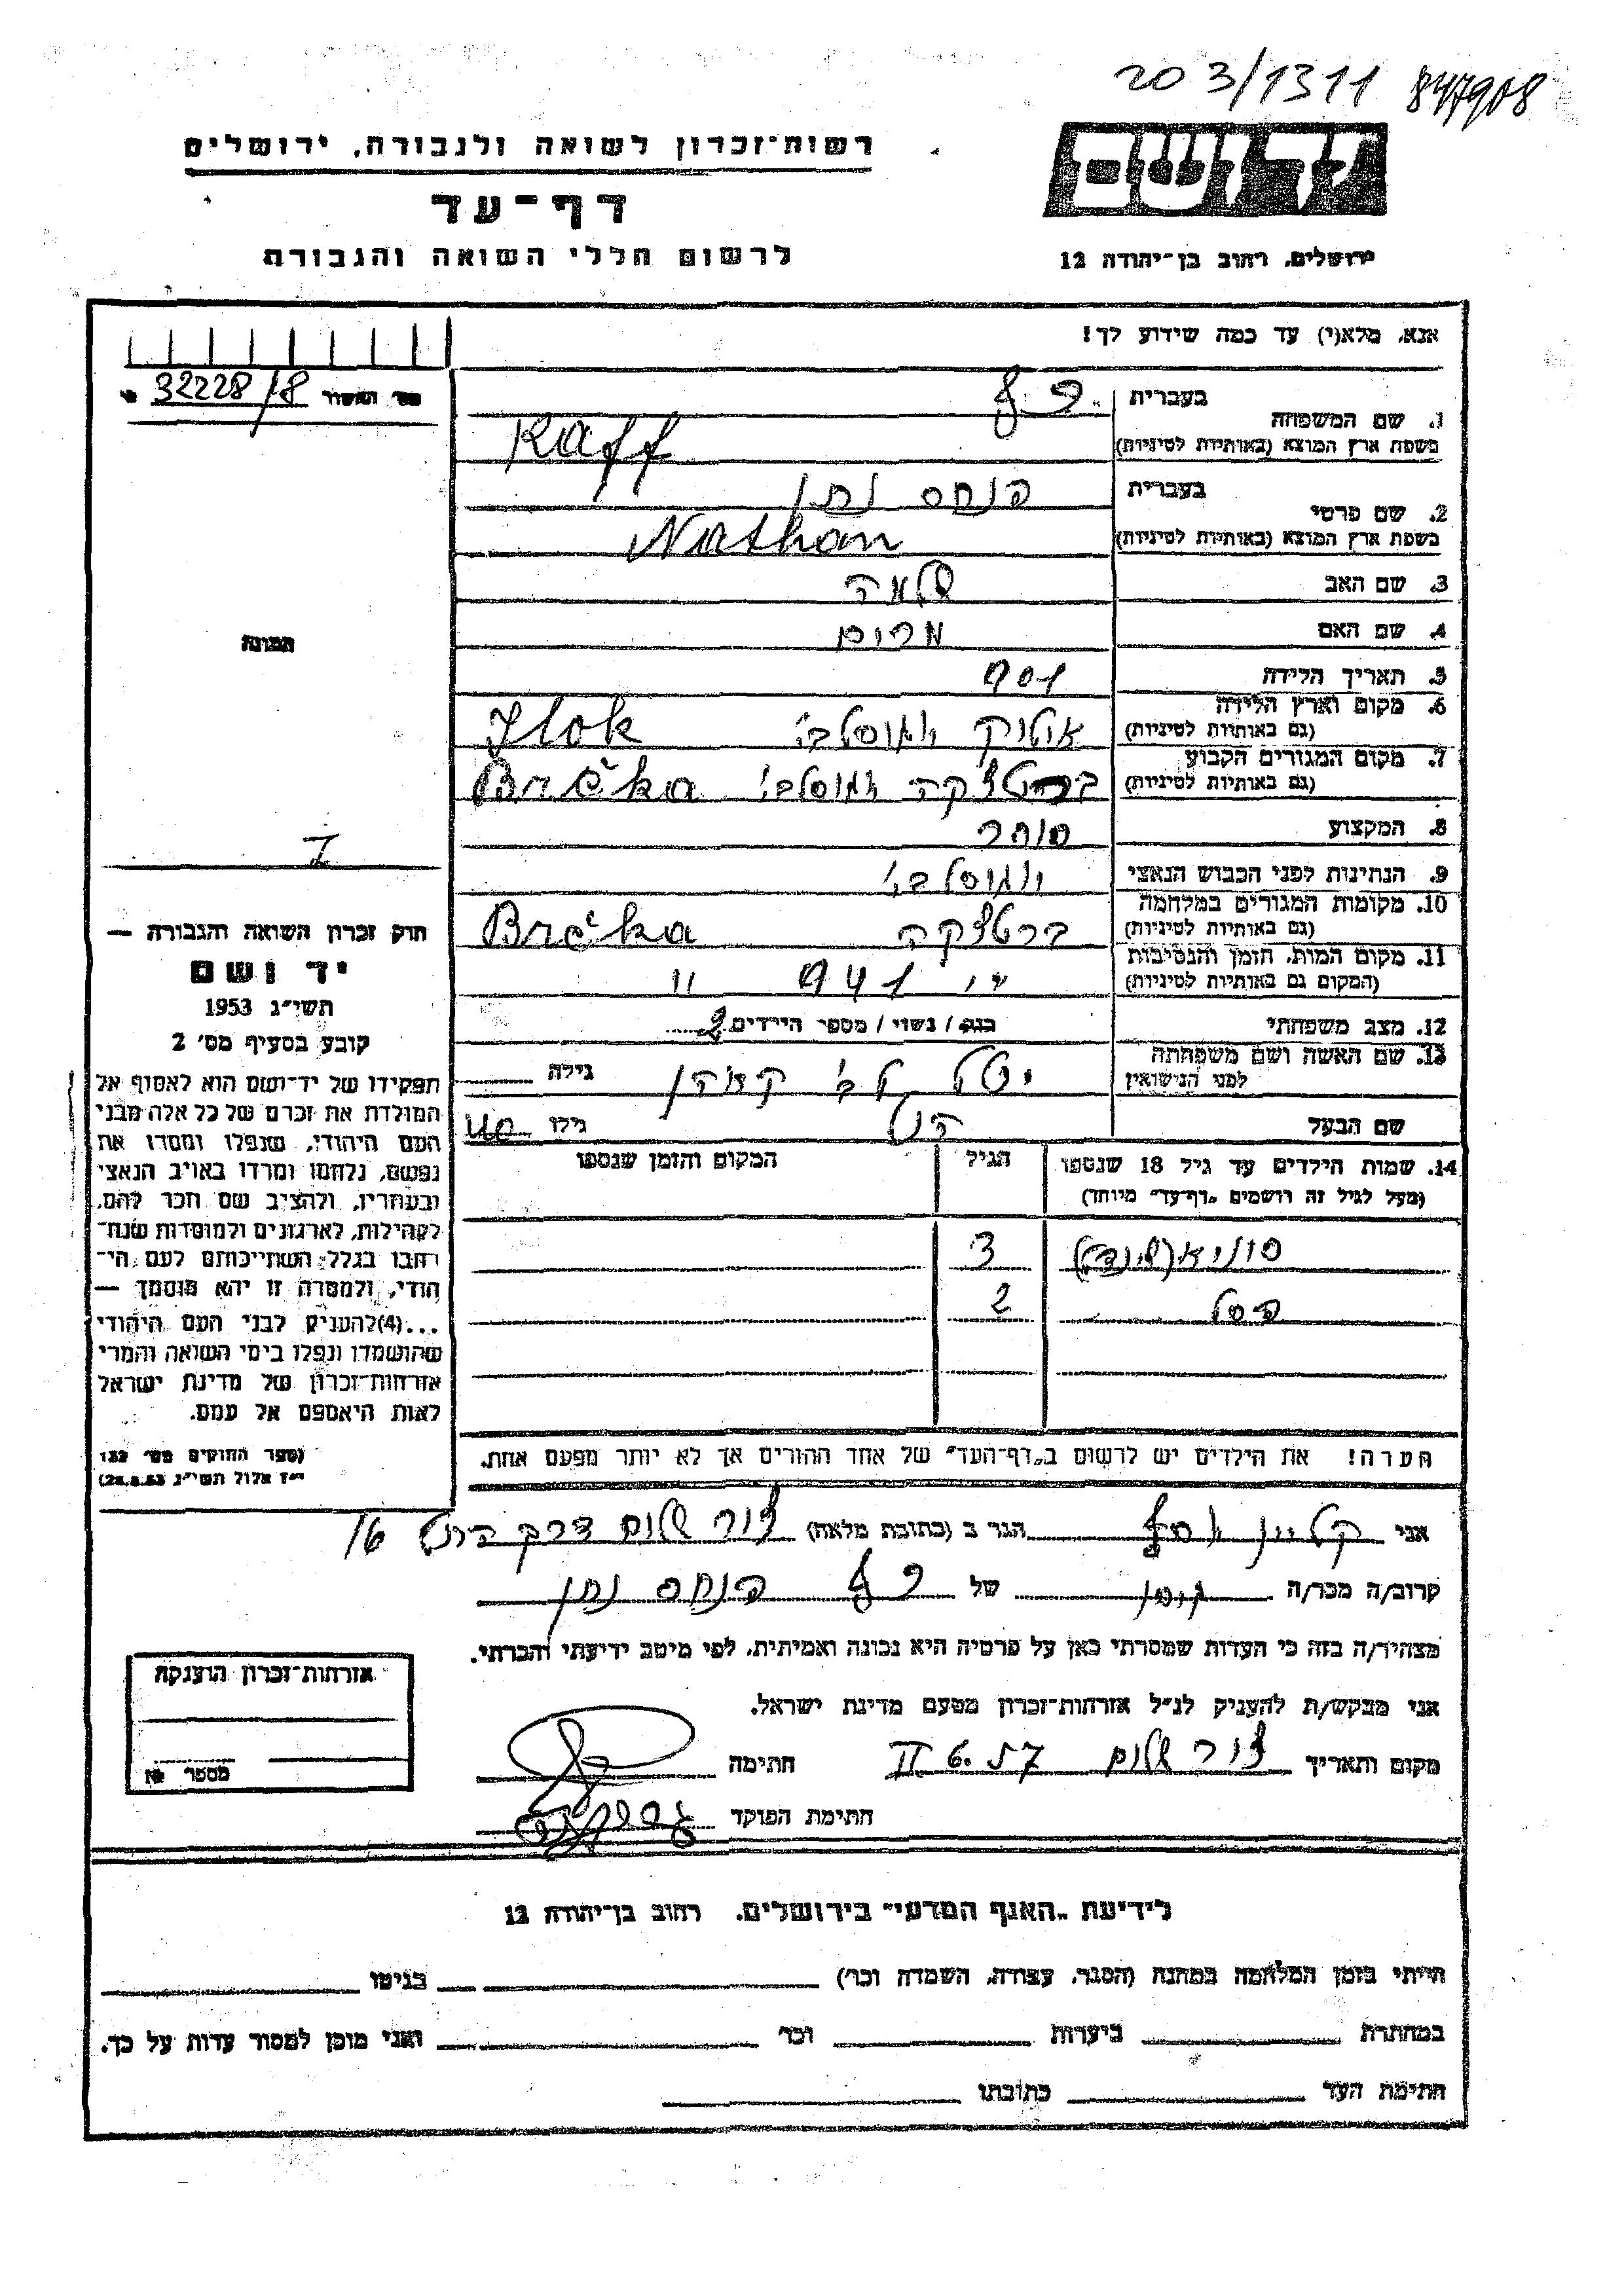 203/1311 847908
יד ושם
רשות־זכרון לשואה ולגבורה, ירושלים
דף־עד
לרשום חללי השואה והגבורה
ירושלים, רחוב בן־יהודה 12
אנא, מלא(י) עד כמה שידוע לך!
32228/18
1. שם המשפחה
בעברית
בשפת ארץ המוצא (באותיות לטיניות) Raff
2. שם פרטי
בעברית פנחס נתן
בשפת ארץ המוצא (באותיות לטיניות) Nathan
3. שם האב שלמה
4. שם האם מרים
5. תאריך הלידה 901
6. מקום וארץ הלידה
(גם באותיות לטיניות) אילוק יוגוסלבי' Ilok
7. מקום המגורים הקבוע
(גם באותיות לטיניות) ברטשקה יוגוסלבי' Brčka
8. המקצוע סוחר
9. הנתינות לפני הכבוש הנאצי יוגוסלבי'
10. מקומות המגורים במלחמה
(גם באותיות לטיניות) ברטשקה Brčka
11. מקום המות, הזמן והנסיבות
(המקום גם באותיות לטיניות) 941 "
12. מצב משפחתי רוק / נשוי / מספר הילדים 2
13. שם האשה ושם משפחתה
לפני הנישואין גילה
שם הבעל גילו 40
14. שמות הילדים עד גיל 18 שנספו הגיל המקום והזמן שנספו
(מעל לגיל זה רושמים „דף־עד" מיוחד)
סוניא 3
2
הערה! את הילדים יש לרשום ב„דף־העד" של אחד ההורים אך לא יותר מפעם אחת.
התמונה
I
חוק זכרון השואה והגבורה —
יד ושם
תשי"ג 1953
קובע בסעיף מס' 2
תפקידו של יד־ושם הוא לאסוף אל
המולדת את זכרם של כל אלה מבני
העם היהודי, שנפלו ומסרו את
נפשם, נלחמו ומרדו באויב הנאצי
ובעוזריו, ולהציב שם וזכר להם,
לקהילות, לארגונים ולמוסדות שנח־
רבו בגלל השתייכותם לעם הי־
הודי, ולמטרה זו יהא מוסמך —
...(4) להעניק לבני העם היהודי
שהושמדו ונפלו בימי השואה והמרי
אזרחות־זכרון של מדינת ישראל
לאות היאספם אל עמם.
(ספר החוקים מס' 132
י"ז אלול תשי"ג 28.8.53)
אני קליין יוסף הגר ב (כתובת מלאה) צור שלום דרך 16
קרוב/ה מכר/ה גיסו של רף פנחס נתן
מצהיר/ה בזה כי העדות שמסרתי כאן על פרטיה היא נכונה ואמיתית, לפי מיטב ידיעתי והכרתי.
אני מבקש/ת להעניק לנ"ל אזרחות־זכרון מטעם מדינת ישראל.
מקום ותאריך צור שלום 11.6.57 חתימה
חתימת הפוקד
אזרחות־זכרון הוענקה
מספר №
לידיעת „האגף המדעי" בירושלים, רחוב בן־יהודה 12
הייתי בזמן המלחמה במחנה (הסגר, עבודה, השמדה וכו') בגיטו
במחתרת ביערות וכו' ואני מוכן למסור עדות על כך.
חתימת העד כתובתו